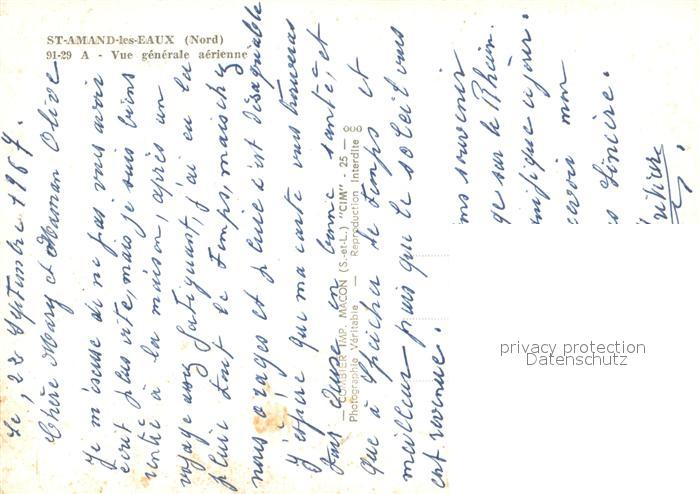 ST-AMAND-les-EAUX (Nord)
91-29 A - Vue générale aérienne
Le, 22 Septembre 1967.
Chère Mary et Maman Olive
Je m'excuse de ne pas vous avoir
écrit plus vite, mais je suis biens
rentré à la maison, après un
voyage assez fatiguant, j'ai eu la
pluie tout le temps, mais chez
nous orages et pluie c'est désagréable
J'espère que ma carte vous trouveras
tous deux en bonne santé, et
que à Spicher le temps et
meilleur puis que le soleil vous
est revenue.
souvenir
sur le Rhein.
nifique séjour.
cevoir mon
sincère.
COMBIER IMP. MACON (S.-et-L.) "CIM" - 25 - 000
Photographie Véritable - Reproduction Interdite
privacy protection
Datenschutz